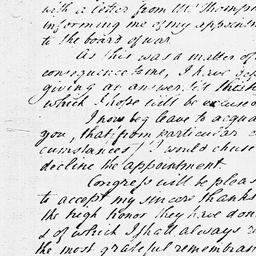 with a letter from Mr. Thomps
informing me of my appointm
to the board of war.
As this was a matter of
consequence to me, I have
giving an answer, 'till this
which I hope will be excused
I now beg leave to acqua
you, that from particular c
cumstances I would chuse
decline the appointment.
Congress will be pleas
to accept my sincere thanks
the high honor they have don
s of which I shall always r
the most grateful remembran